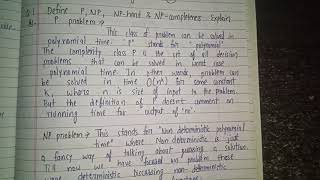 Q.1 Define P, NP, NP-hard & NP-completeness. Explain
P problem →
This class of problem can be solved in
polynomial time. "P" stands for "polynomial"
The complexity class P is the set of all decision
problems that can be solved in worst case
polynomial time. In other words, problem can
be solved in time O(n^k) for some constant
K, where n is size of input to the problem.
But the definition of P doesn't comment on
running time for output of "no".
NP problem → This stands for "Non deterministic polynomial
time" where Non deterministic is just
a fancy way of talking about guessing a solution.
Till now we have focused on problem these
were deterministic. Discussing non-deterministic